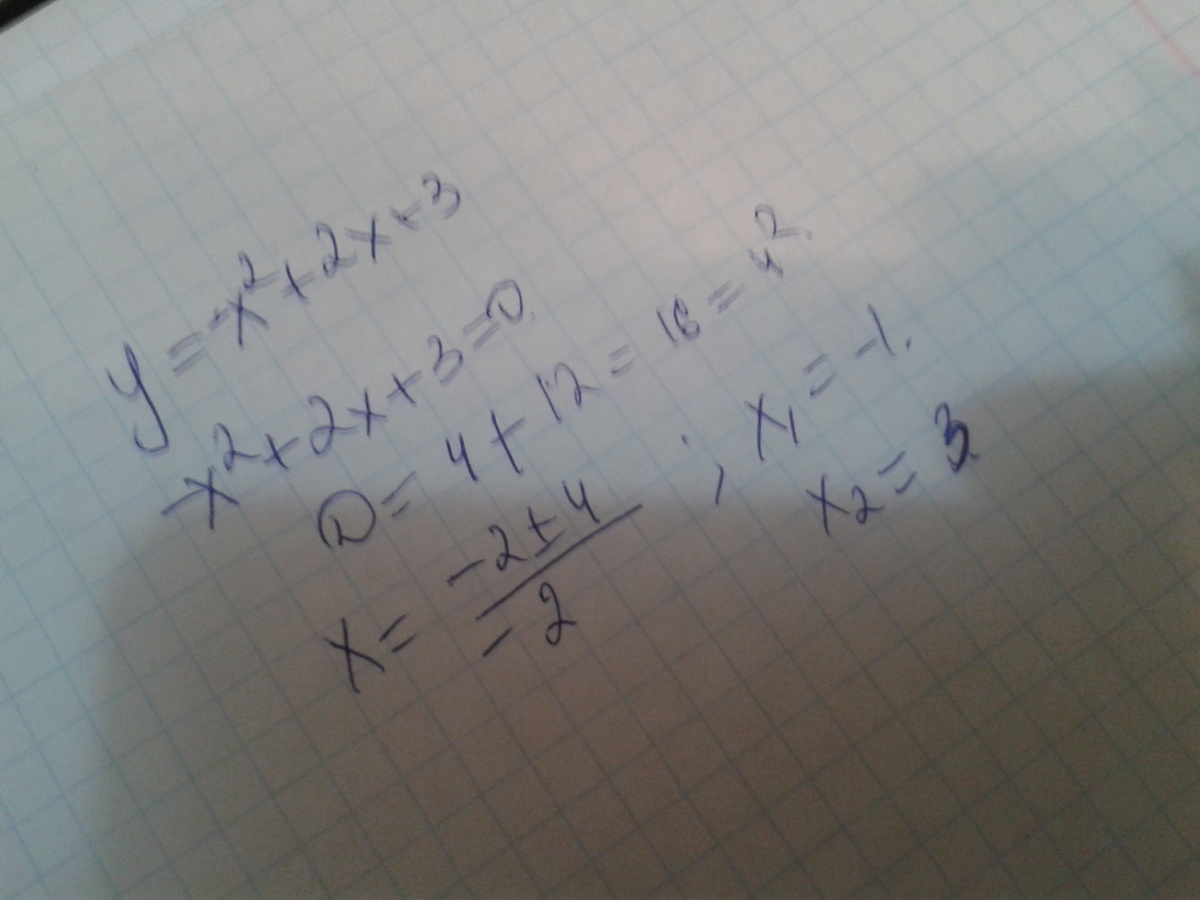 y = -x² + 2x + 3
-x² + 2x + 3 = 0.
D = 4 + 12 = 16 = 4².
x = (-2 ± 4)/(-2) ; x₁ = -1.
x₂ = 3